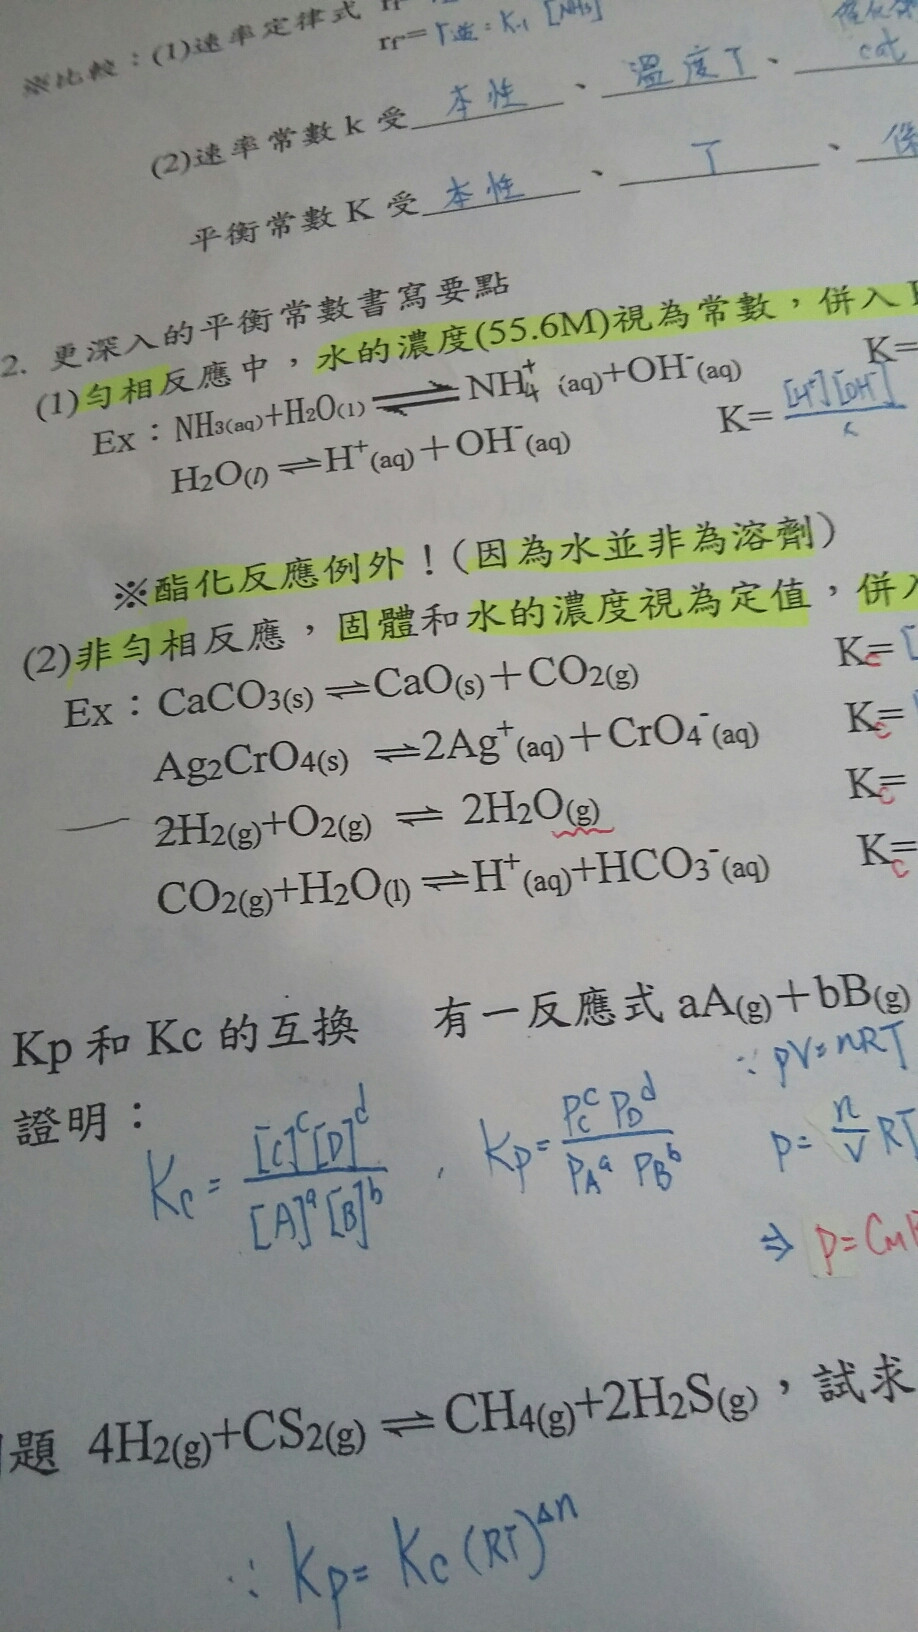 ※比較：(1)速率定律式
rr=r逆=K-1 [NH3]
(2)速率常數 k 受 本性 、 溫度T 、 cat
平衡常數 K 受 本性 、 T 、
2. 更深入的平衡常數書寫要點
(1)勻相反應中，水的濃度(55.6M)視為常數，併入
Ex：NH3(aq)+H2O(l) ⇌ NH4+(aq)+OH-(aq) K=
H2O(l) ⇌ H+(aq)+OH-(aq) K= [H+][OH-]
※酯化反應例外！(因為水並非為溶劑)
(2)非勻相反應，固體和水的濃度視為定值，併入
Ex：CaCO3(s) ⇌ CaO(s)+CO2(g) Kc=[
Ag2CrO4(s) ⇌ 2Ag+(aq)+CrO4-(aq) Kc=
2H2(g)+O2(g) ⇌ 2H2O(g) Kc=
CO2(g)+H2O(l) ⇌ H+(aq)+HCO3-(aq) Kc=
Kp 和 Kc 的互換 有一反應式 aA(g)+bB(g)
∵ PV=nRT
證明：
Kc = [C]^c[D]^d / [A]^a[B]^b , Kp = PC^c PD^d / PA^a PB^b P= n/V RT
⇒ P=CM
題 4H2(g)+CS2(g) ⇌ CH4(g)+2H2S(g)，試求
∵ Kp= Kc (RT)^Δn